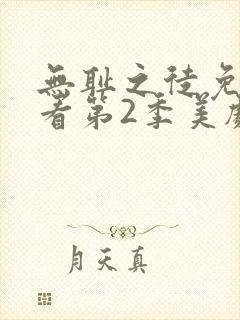 無耻之徒免
看第2季美劇
月天真